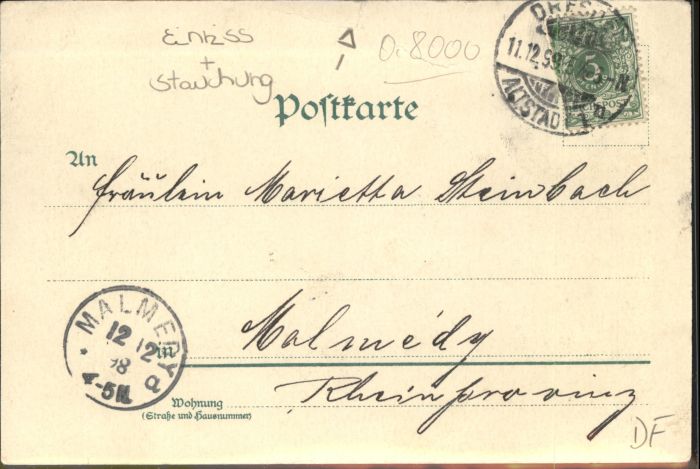 Einriss
+
Stauchung
0.8000
DRESDEN
11.12.98
ALTSTADT
5
POST
Postkarte
An
Fräulein Marietta Steinbach
MALMEDY
12 12
98
4-5N.
in
Malmédy
Rheinprovinz
Wohnung
(Straße und Hausnummer)
DF